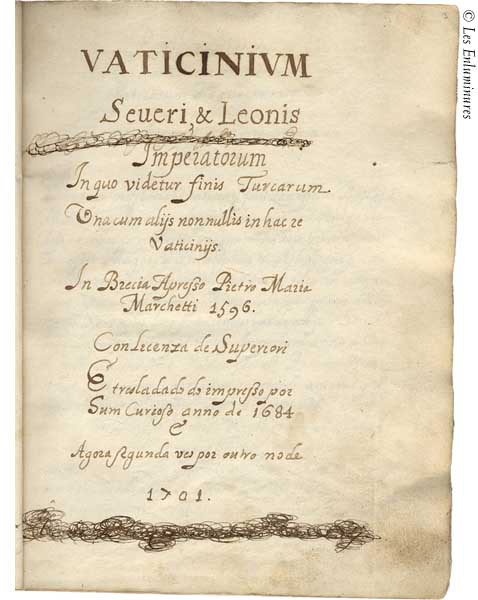 VATICINIVM
Seueri, & Leonis
Imperatorum
In quo videtur finis Turcarum
Vna cum alijs nonnullis in hac re
Vaticinijs.
In Brecia Apresso Pietro Maria
Marchetti 1596.
Con Licenza de Superiori
E tresladado do impresso por
hum Curioso anno de 1684
E
Agora segunda ves por outro no de
1701.
© Les Enluminures